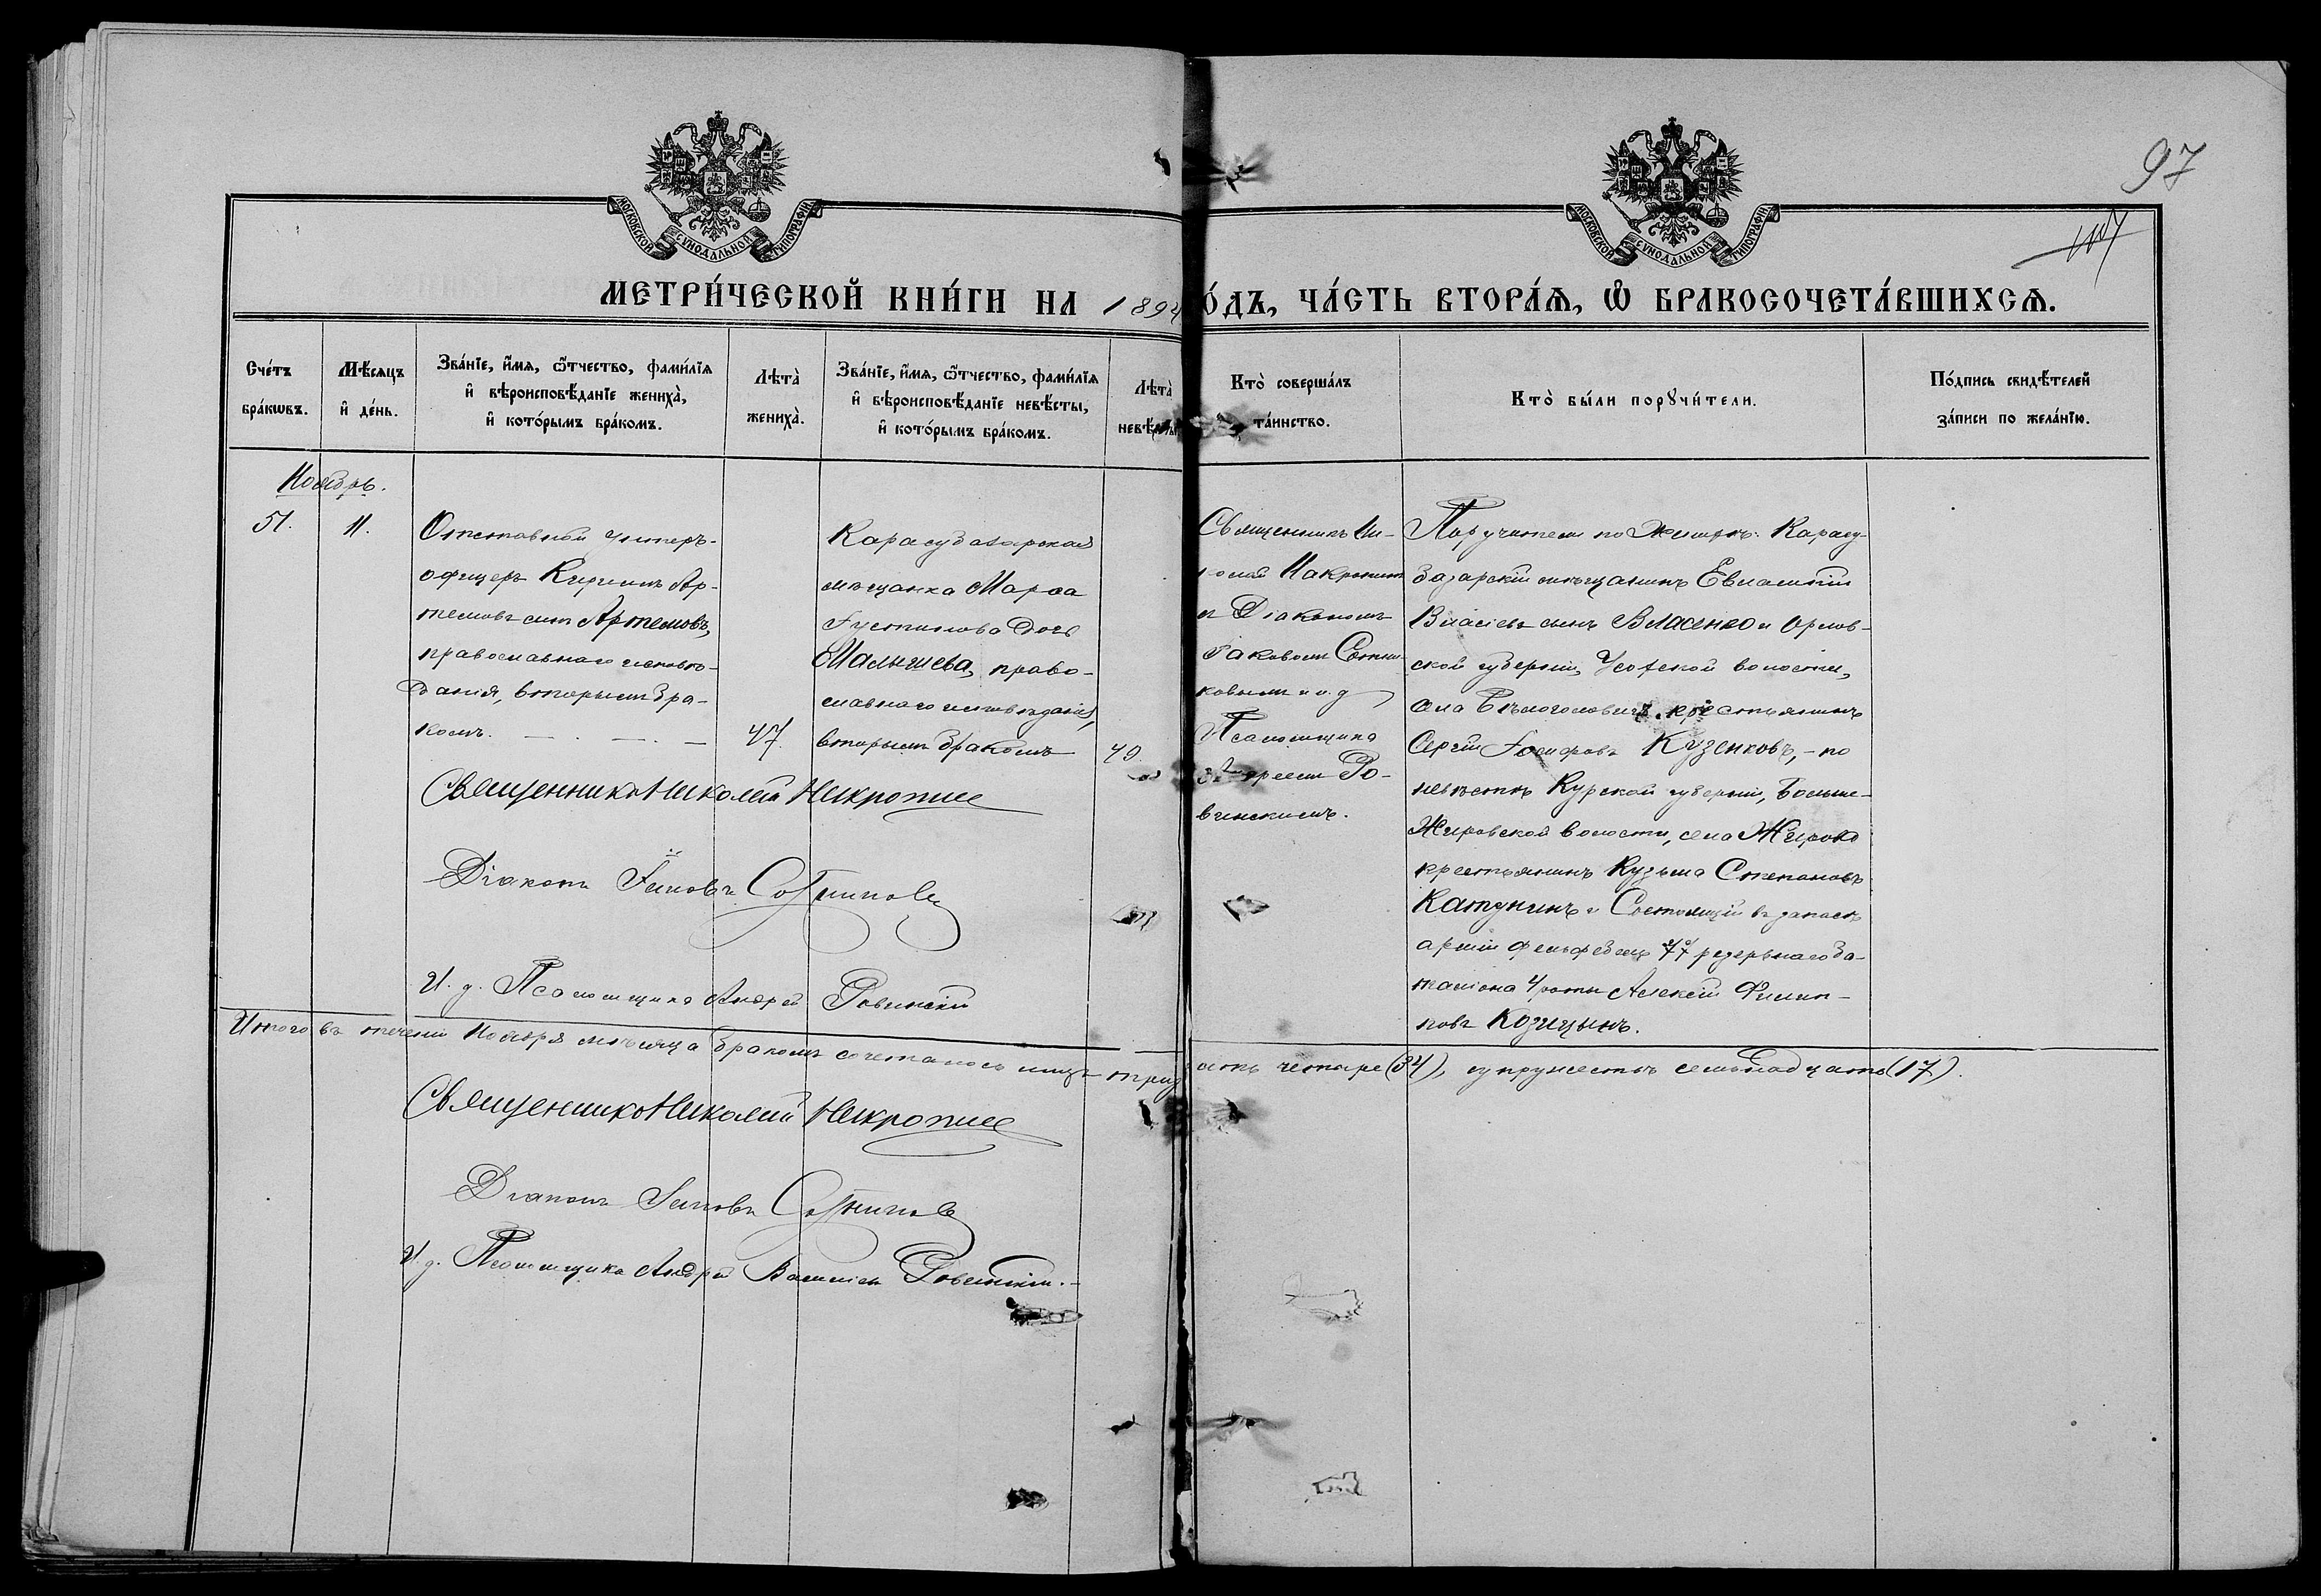 97
МОСКОВСКОЙ СУНОДАЛЬНОЙ ТИПОГРАФІИ
МОСКОВСКОЙ СУНОДАЛЬНОЙ ТИПОГРАФІИ
МЕТРИ́ЧЕСКОЙ КНИ́ГИ НА 1894
О́ДЪ, ЧА́СТЬ ВТОРА́Я, Ѿ БРАКОСОЧЕТА́ВШИХСЯ.
Сче́тъ бра́кωвъ.
Мѣ́сяцъ и де́нь.
Зва́нїе, и́мя, ѿтчество, фами́лїя и вѣроисповѣ́данїе жениха̀, и кото́рымъ бра́комъ.
Лѣта̀ жениха̀.
Зва́нїе, и́мя, ѿтчество, фами́лїя и вѣроисповѣ́данїе невѣ́сты, и кото́рымъ бра́комъ.
Лѣта̀ невѣ́сты
Кто̀ соверша́лъ та́инство.
Кто̀ бы́ли порꙋчи́тели.
По́дпись свидѣ́телей за́писи по жела́нїю.
Ноябрь.
51.
11.
Отставной Унтеръ-
офицеръ Кирилъ Ар-
темовъ сынъ Артемовъ,
православнаго исповѣ-
данія, вторымъ бра-
комъ.
47.
Карасубазарская
мѣщанка Марѳа
Іустинова дочь
Малышева, право-
славнаго исповѣданія,
вторымъ бракомъ
40.
Священникъ Ни-
колай Макропит
съ Діакономъ
Іаковомъ Сотни-
ковымъ и и. д
Псаломщика
Андреем Ро-
винскимъ.
Поручители по Женихѣ: Карасу-
базарскій мѣщанинъ Евлампій
Власіевъ сынъ Власенко и Орлов-
ской губерніи, волости,
села крестьянинъ
Сергій Іосифовъ Кузенковъ, - по
невѣстѣ Курской губерніи, Больше-
Жировской волости, села Жирово
крестьянинъ Кузьма Степановъ
Катунинъ и Состоящій въ запасѣ
арміи фельдфебель 77 резервнаго ба-
таліона 4 роты Алексій Филип-
повъ Козицынъ.
Священникъ Николай
Діаконъ Іаковъ Сотниковъ
И. д. Псаломщика Андрей Ровинскій
Итого въ теченіи Ноября мѣсяца бракомъ сочеталось лицъ тридцать четыре (34), супружествъ семьнадцать (17).
Священникъ Николай
Діаконъ Іаковъ Сотниковъ
И. д. Псаломщика Андрей Ровинскій.